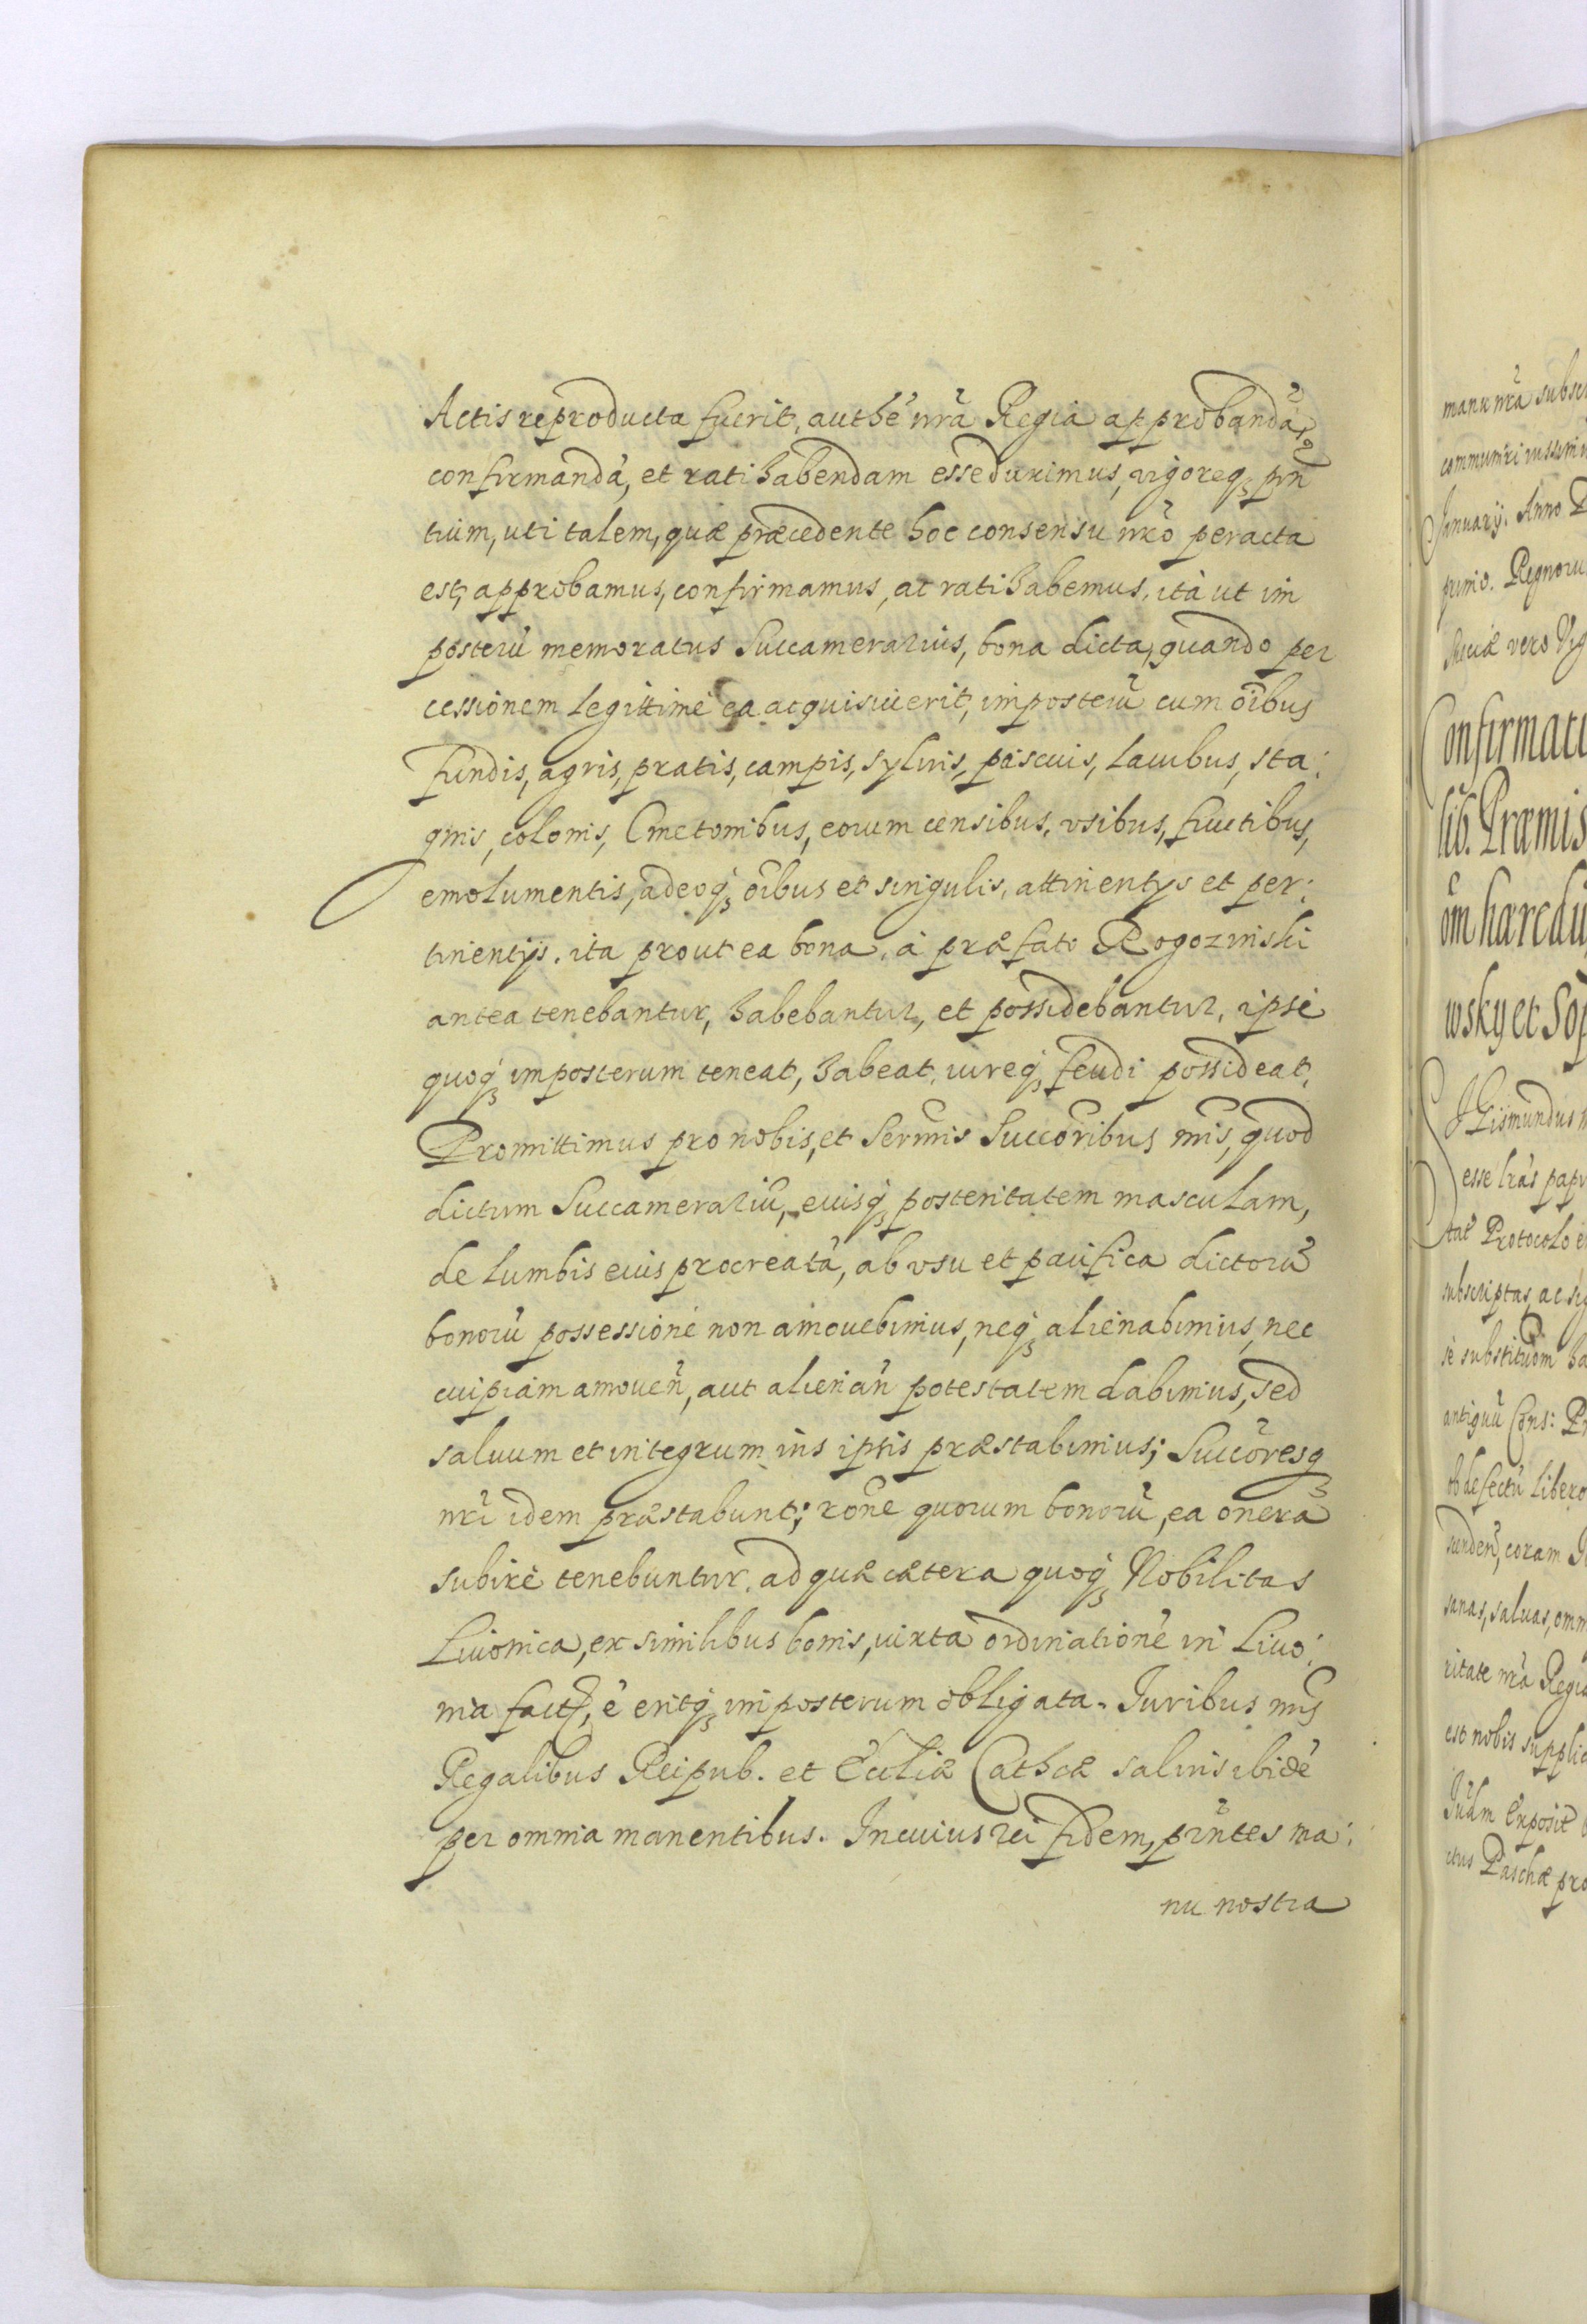 Actis reproducta fuerit, authẽ nrã Regia approbandã,
confirmandã, et ratihabendam esse duximus, vigoreq₃ pñ
tium, uti talem, quæ præcedente hoc consensu nrõ peracta
est, approbamus, confirmamus, ac ratihabemus, ità ut im
posterũ memoratus Succamerarius, bona dicta, quando per
cessionem legittimè ea acquisiuerit, imposterũ cum oĩbus
fundis, agris, pratis, campis, syluis, pascuis, lacubus, sta:
gnis, colonis, Cmetonibus, eorum censibus, vsibus, fructibus,
emolumentis, adeoq₃ oĩbus et singulis, attinentÿs et per:
tinentÿs, ita prout ea bona, à præfato Rogozinski
antea tenebantur, habebantur, et possidebantur, ipse
quoq₃ imposterum teneat, habeat, iureq₃ feudi possideat,
Promittimus pro nobis, et Sermis Succoribus nris, quod
dictum Succamerariũ, eiusq₃ posteritatem masculam,
de lumbis eius procreatã, ab vsu et pacifica dictorũ
bonorũ possessione non amouebimus, neq₃ alienabimus, nec
cuipiam amouen̄, aut alienan̄ potestatem dabimus, sed
saluum et integrum ius ipsis præstabimus; Succoresq₃
nri idem præstabunt; rõne quorum bonorũ, ea onera
subire tenebuntur, ad quæ cætera quoq₃ Nobilitas
Liuonica, ex similibus bonis, iuxta ordinatione in Liuo:
nia fact, ẽ eritq₃ imposterum obligata. Iuribus nris
Regalibus Reipub. et Eccliæ Cathcæ saluis ibidẽ
per omnia manentibus. In cuius rei fidem, pñtes ma:
nu nostra
manu nrã subsc
communiri iussimu
January. Anno D
primo. Regnoru
Sueciæ vero Vig
Confirmati
lib. Præmis
om hæredi
wsky et Sop
Gismundus
esse lras papi
Protocolo e
subscriptas, ac sig
se substituom ha
antiquũ Cons: P
ob defectũ libero
coram
sanas, saluas, omn
ritate nrã Regia
est nobis supplic
Exposit
Paschæ pro